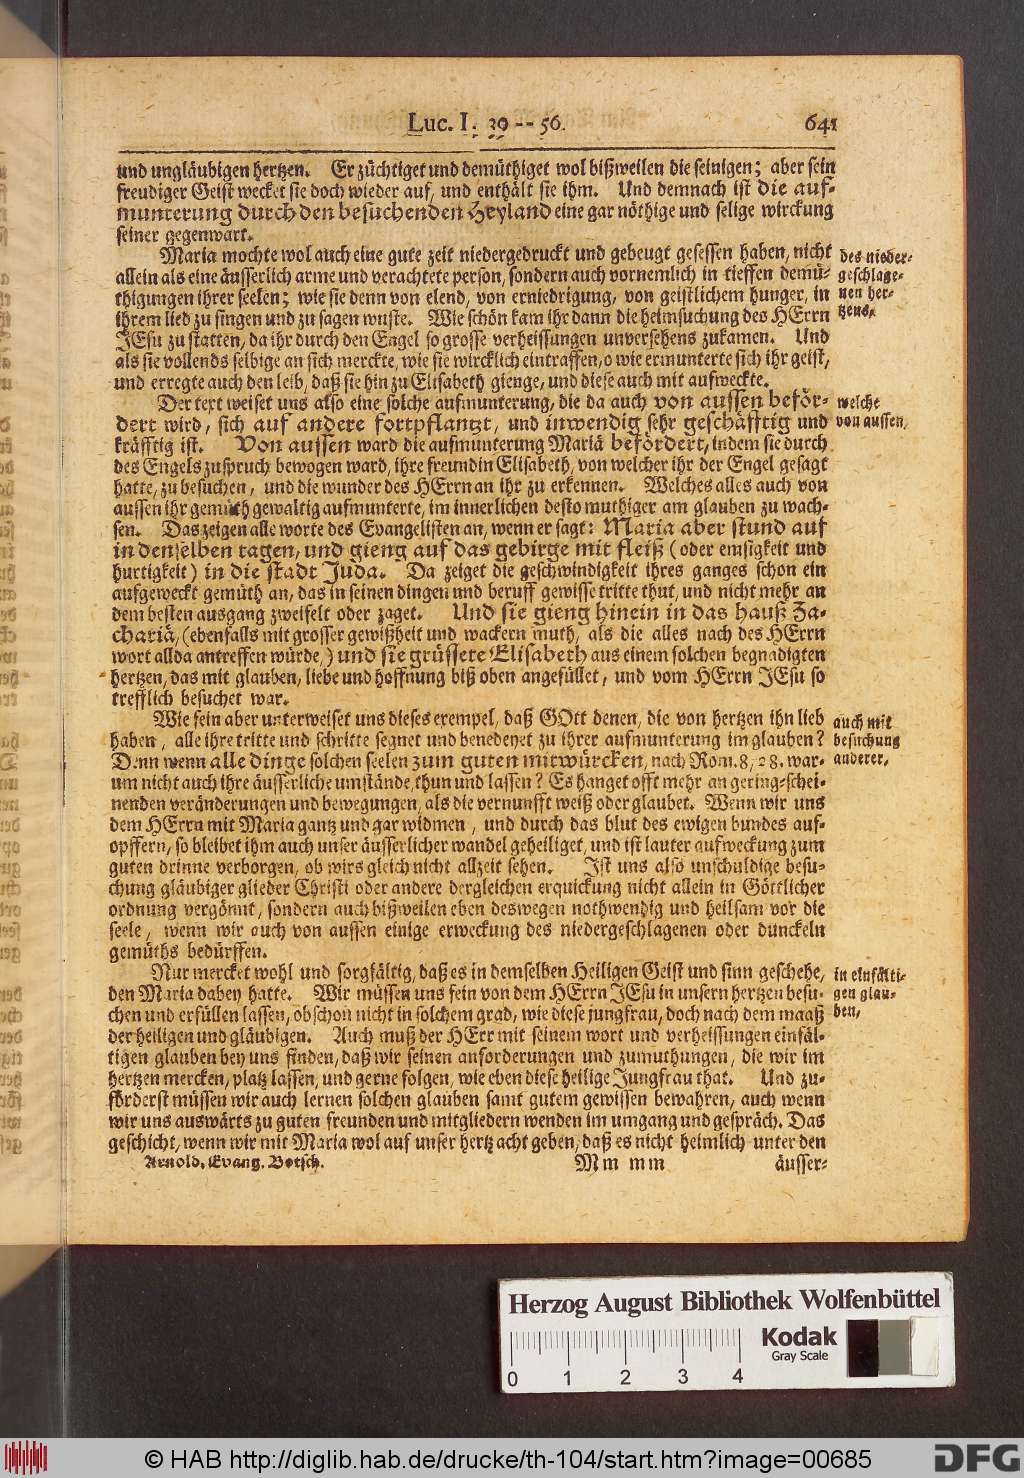 Luc. I. 39--56.
641
und ungläubigen hertzen. Er züchtiget und demüthiget wol bißweilen die seinigen; aber sein
freudiger Geist wecket sie doch wieder auf, und enthält sie ihm. Und demnach ist die auf-
munterung durch den besuchenden Heyland eine gar nöthige und selige wirckung
seiner gegenwart.
Maria mochte wol auch eine gute zeit niedergedruckt und gebeugt gesessen haben, nicht
allein als eine äusserlich arme und verachtete person, sondern auch vornemlich in tieffen demü-
thigungen ihrer seelen; wie sie denn von elend, von erniedrigung, von geistlichem hunger, in
ihrem lied zu singen und zu sagen wuste. Wie schön kam ihr dann die heimsuchung des HErrn
JEsu zu statten, da ihr durch den Engel so grosse verheissungen unversehens zukamen. Und
als sie vollends selbige an sich merckte, wie sie wircklich eintraffen, o wie ermunterte sich ihr geist,
und erregte auch den leib, daß sie hin zu Elisabeth gienge, und diese auch mit aufweckte.
des nieder-
geschlage-
nen her-
tzens,
Der text weiset uns also eine solche aufmunterung, die da auch von aussen beför-
dert wird, sich auf andere fortpflantzt, und inwendig sehr geschäfftig und
kräfftig ist. Von aussen ward die aufmunterung Mariä befördert, indem sie durch
des Engels zuspruch bewogen ward, ihre freundin Elisabeth, von welcher ihr der Engel gesagt
hatte, zu besuchen, und die wunder des HErrn an ihr zu erkennen. Welches alles auch von
aussen ihr gemüth gewaltig aufmunterte, im innerlichen desto muthiger am glauben zu wach-
sen. Das zeigen alle worte des Evangelisten an, wenn er sagt: Maria aber stund auf
in denselben tagen, und gieng auf das gebirge mit fleiß (oder emsigkeit und
hurtigkeit) in die stadt Juda. Da zeiget die geschwindigkeit ihres ganges schon ein
aufgeweckt gemüth an, das in seinen dingen und beruff gewisse tritte thut, und nicht mehr an
dem besten ausgang zweifelt oder zaget. Und sie gieng hinein in das hauß Za-
chariä, (ebenfalls mit grosser gewißheit und wackern muth, als die alles nach des HErrn
wort allda antreffen würde,) und sie grüssete Elisabeth aus einem solchen begnadigten
hertzen, das mit glauben, liebe und hoffnung biß oben angefüllet, und vom HErrn JEsu so
trefflich besuchet war.
welche
von aussen,
Wie fein aber unterweiset uns dieses exempel, daß GOtt denen, die von hertzen ihn lieb
haben, alle ihre tritte und schritte segnet und benedeyet zu ihrer aufmunterung im glauben?
Denn wenn alle dinge solchen seelen zum guten mitwürcken, nach Rom. 8, 28. war-
um nicht auch ihre äusserliche umstände, thun und lassen? Es hanget offt mehr an gering-schei-
nenden veränderungen und bewegungen, als die vernunfft weiß oder glaubet. Wenn wir uns
dem HErrn mit Maria gantz und gar widmen, und durch das blut des ewigen bundes auf-
opffern, so bleibet ihm auch unser äusserlicher wandel geheiliget, und ist lauter aufweckung zum
guten drinne verborgen, ob wirs gleich nicht allzeit sehen. Ist uns also unschuldige besu-
chung gläubiger glieder Christi oder andere dergleichen erquickung nicht allein in Göttlicher
ordnung vergönnt, sondern auch bißweilen eben deswegen nothwendig und heilsam vor die
seele, wenn wir auch von aussen einige erweckung des niedergeschlagenen oder dunckeln
gemüths bedürffen.
auch mit
besuchung
anderer,
Nur mercket wohl und sorgfältig, daß es in demselben Heiligen Geist und sinn geschehe,
den Maria dabey hatte. Wir müssen uns fein von dem HErrn JEsu in unsern hertzen besu-
chen und erfüllen lassen, obschon nicht in solchem grad, wie diese jungfrau, doch nach dem maaß
der heiligen und gläubigen. Auch muß der HErr mit seinem wort und verheissungen einfäl-
tigen glauben bey uns finden, daß wir seinen anforderungen und zumuthungen, die wir im
hertzen mercken, platz lassen, und gerne folgen, wie eben diese heilige Jungfrau that. Und zu-
förderst müssen wir auch lernen solchen glauben samt gutem gewissen bewahren, auch wenn
wir uns auswärts zu guten freunden und mitgliedern wenden im umgang und gespräch. Das
geschicht, wenn wir mit Maria wol auf unser hertz acht geben, daß es nicht heimlich unter den
in einfälti-
gen glau-
ben,
Arnold. Evang. Botsch.
Mm mm
äusser-
Herzog August Bibliothek Wolfenbüttel
0 1 2 3 4
Kodak
Gray Scale
© HAB http://diglib.hab.de/drucke/th-104/start.htm?image=00685
DFG